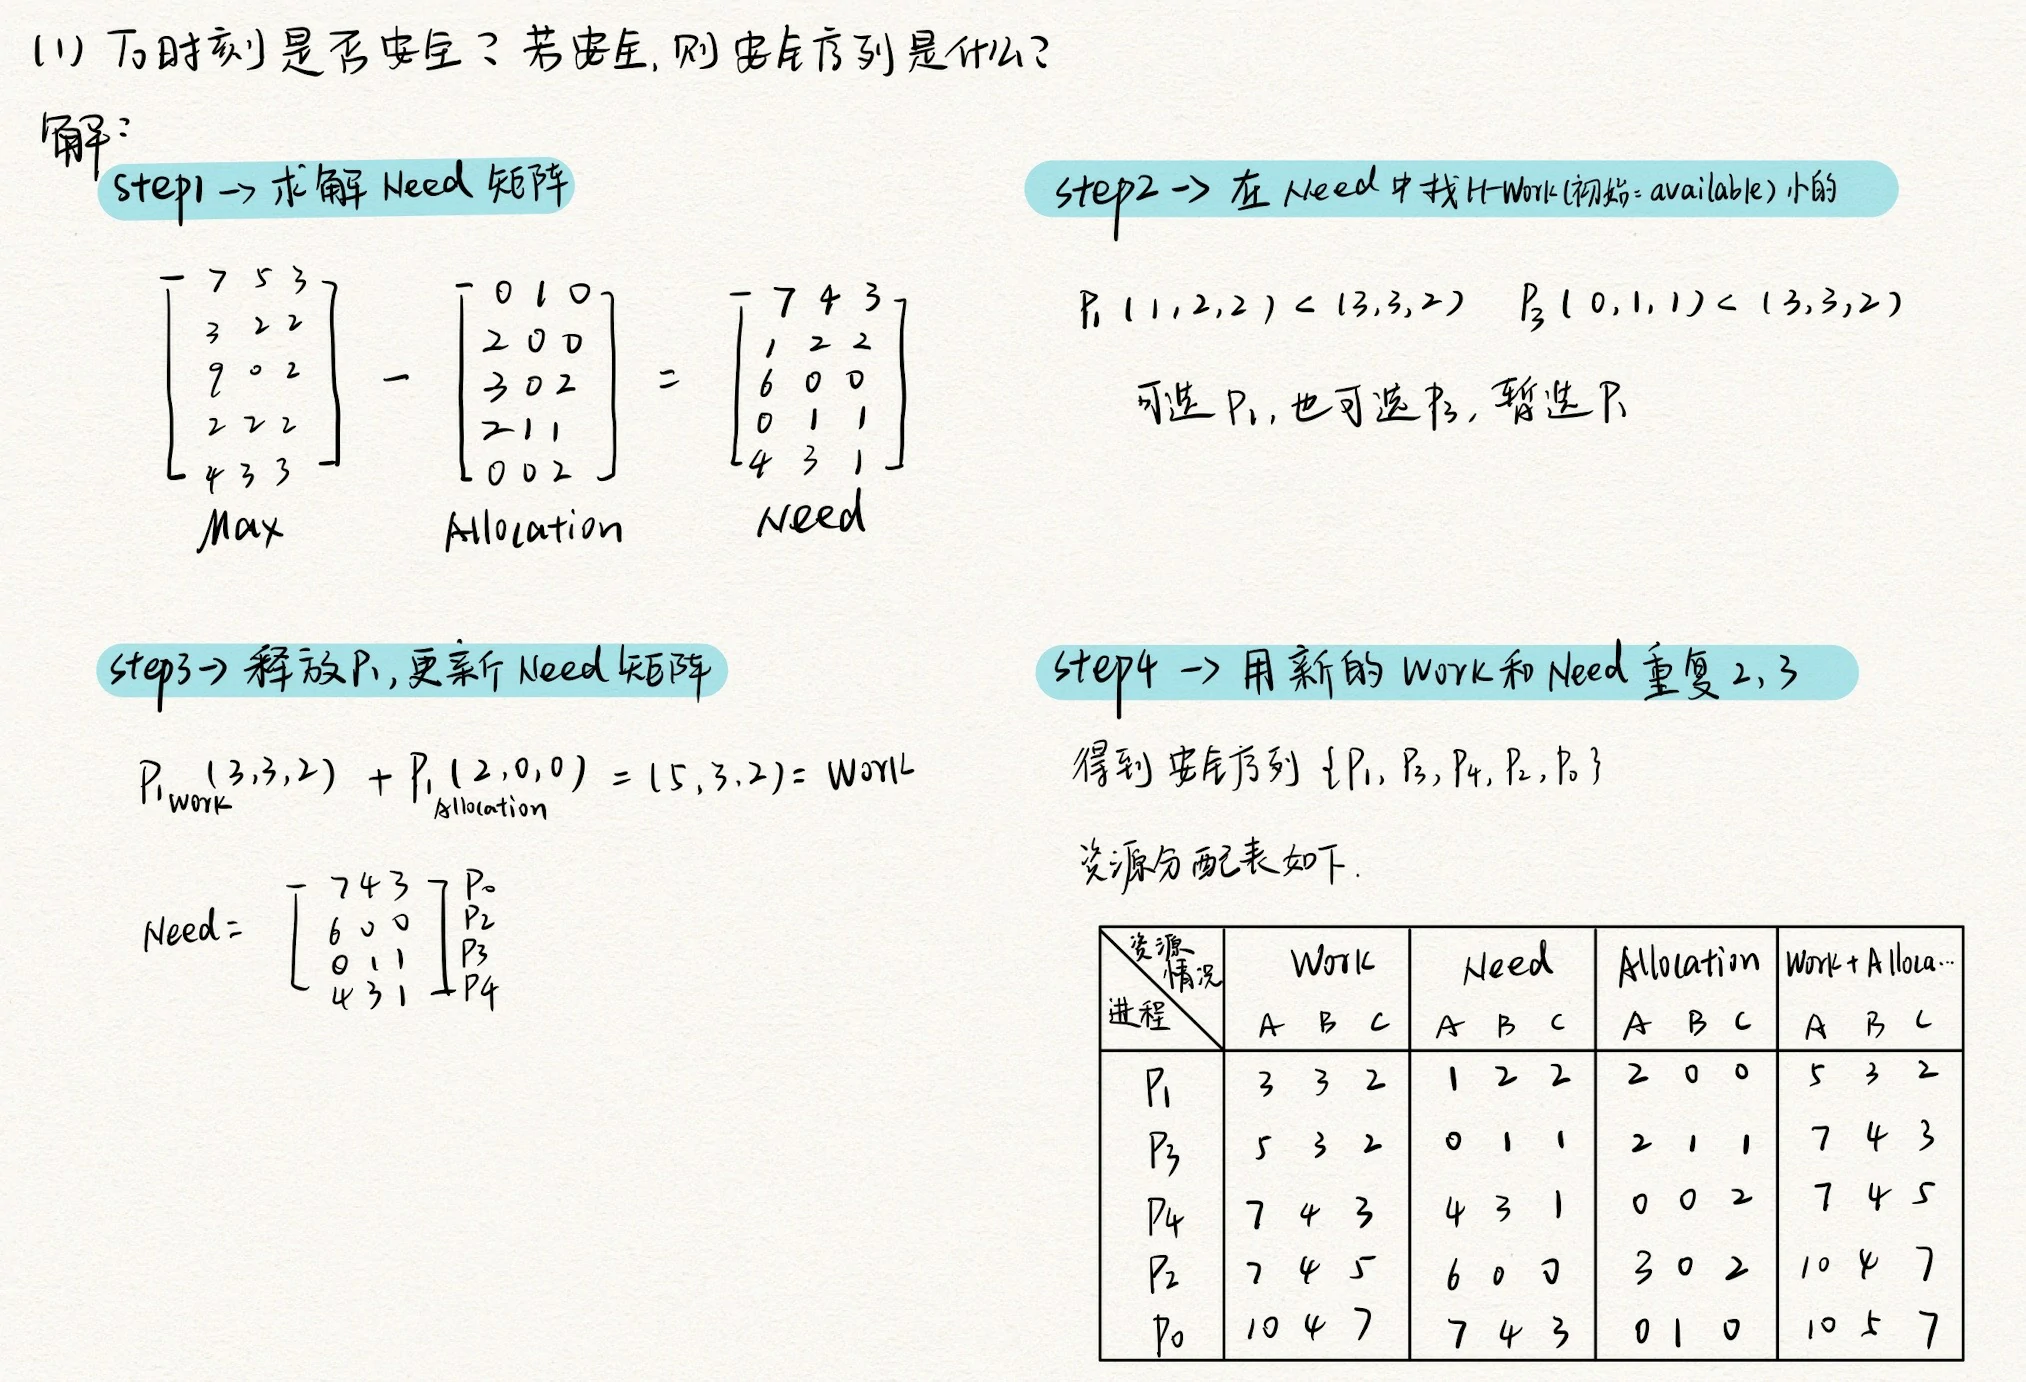 (1) T0时刻是否安全？若安全，则安全序列是什么？
解：
step1 → 求解 Need 矩阵
7 5 3
3 2 2
9 0 2
2 2 2
4 3 3
Max
−
0 1 0
2 0 0
3 0 2
2 1 1
0 0 2
Allocation
=
7 4 3
1 2 2
6 0 0
0 1 1
4 3 1
Need
step2 → 在 Need 中找比Work(初始=available)小的
P1 (1,2,2) < (3,3,2) P3 (0,1,1) < (3,3,2)
可选 P1, 也可选 P3, 暂选 P1
step3 → 释放P1, 更新 Need 矩阵
P1 work (3,3,2) + P1 Allocation (2,0,0) = (5,3,2) = Work
Need =
7 4 3 P0
6 0 0 P2
0 1 1 P3
4 3 1 P4
step4 → 用新的 Work 和 Need 重复 2, 3
得到 安全序列 {P1, P3, P4, P2, P0}
资源分配表如下.
资源情况 进程 Work Need Allocation Work + Alloca...
A B C A B C A B C A B C
P1 3 3 2 1 2 2 2 0 0 5 3 2
P3 5 3 2 0 1 1 2 1 1 7 4 3
P4 7 4 3 4 3 1 0 0 2 7 4 5
P2 7 4 5 6 0 0 3 0 2 10 4 7
P0 10 4 7 7 4 3 0 1 0 10 5 7